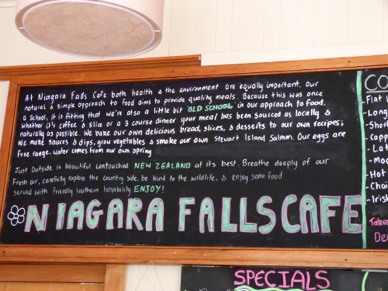 At Niagara Falls Cafe both health & the environment are equally important. Our
natural & simple approach to food aims to provide quality meals. Because this was once
a School, it is fitting that we're also a little bit OLD SCHOOL in our approach to food.
Whether it's coffee & slice or a 3 course dinner your meal has been sourced as locally &
naturally as possible. We bake our own delicious bread, slices, & desserts to our own recipes;
We make sauces & dips, grow vegetables & smoke our own Stewart Island Salmon. Our eggs are
free range, water comes from our own spring
Just outside is beautiful untouched NEW ZEALAND at its best. Breathe deeply of our
Fresh air, carefully explore the country side, be kind to the wildlife, & enjoy some food
served with friendly Southern hospitality ENJOY!
NIAGARA FALLS CAFE
CO
Flat
Long
Shor
Capp
Lat
Moc
Hot
Cha
Irish
SPECIALS